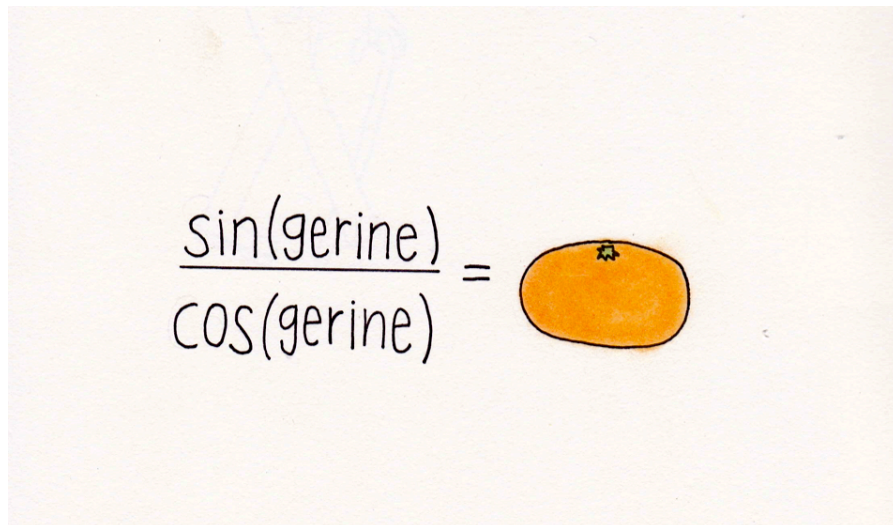 sin(gerine)
cos(gerine) =